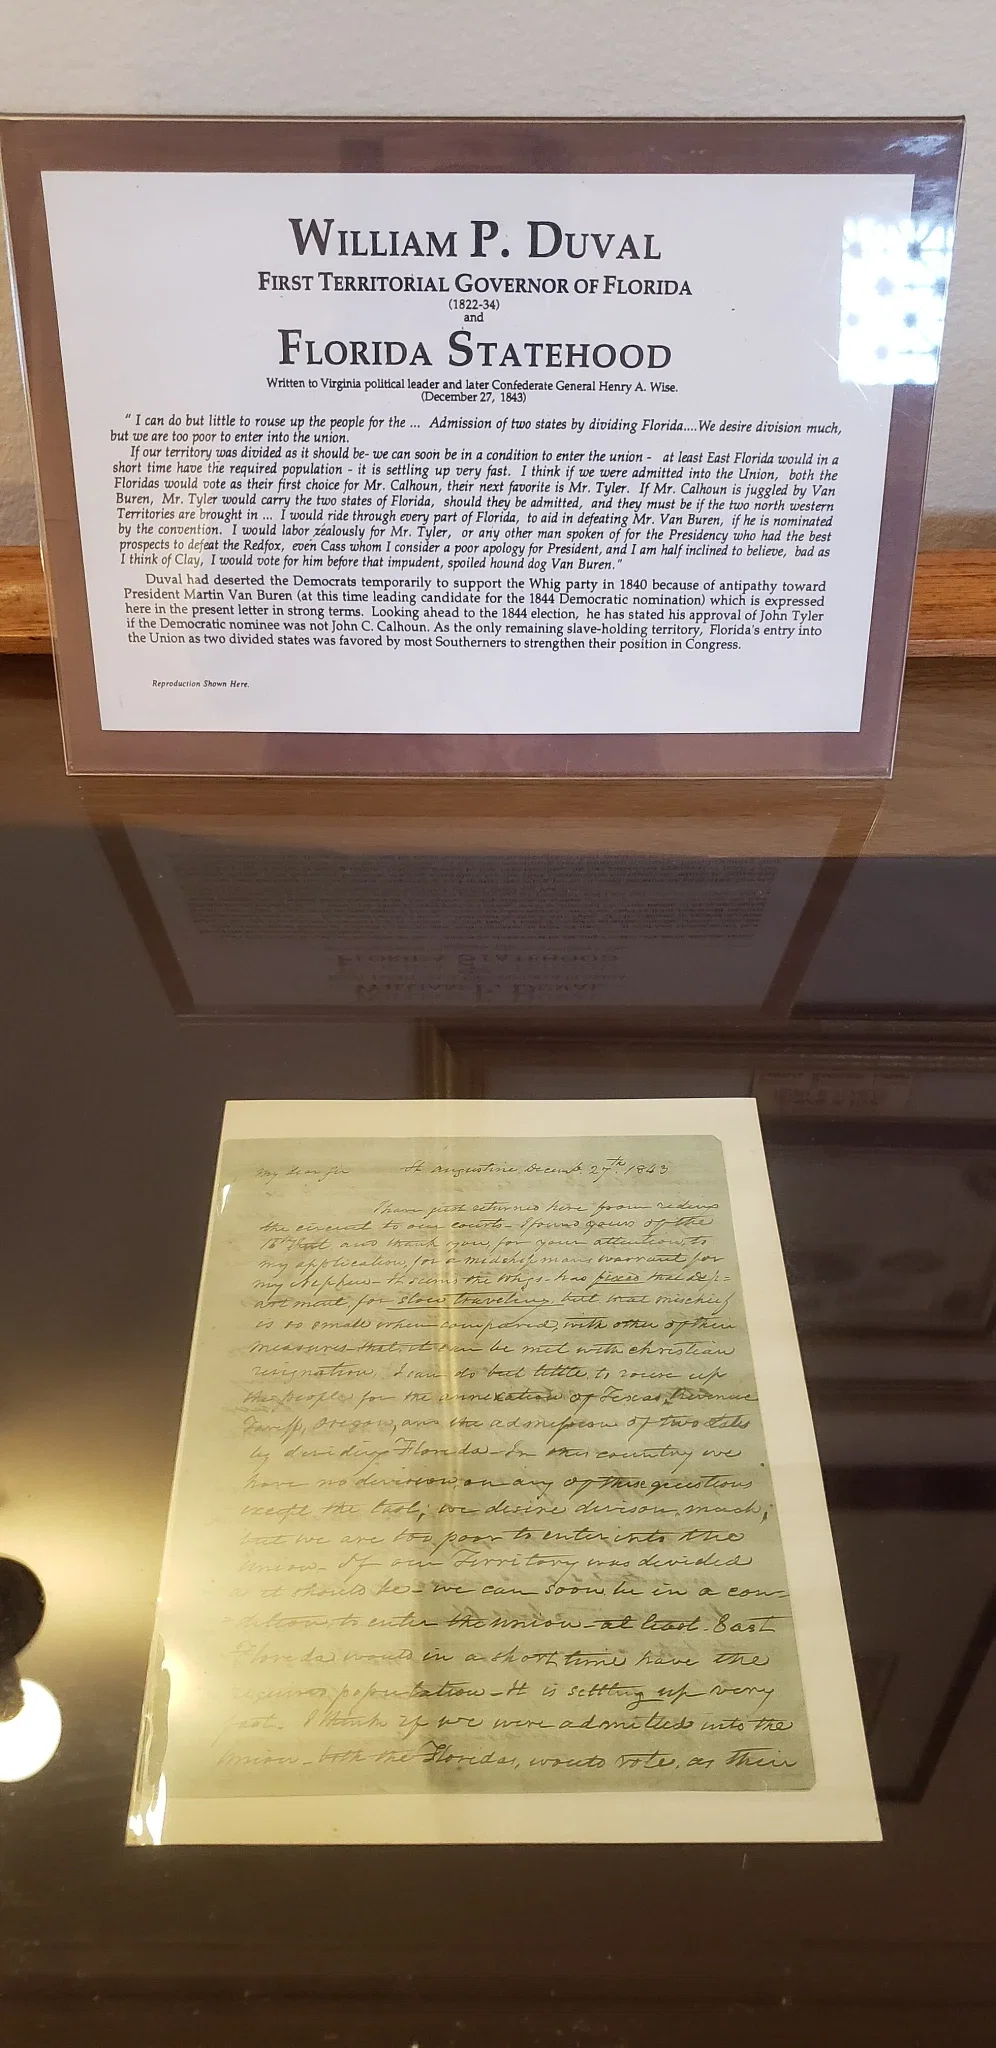 WILLIAM P. DUVAL
FIRST TERRITORIAL GOVERNOR OF FLORIDA
(1822-34)
and
FLORIDA STATEHOOD
Written to Virginia political leader and later Confederate General Henry A. Wise.
(December 27, 1843)
" I can do but little to rouse up the people for the ... Admission of two states by dividing Florida....We desire division much,
but we are too poor to enter into the union.
If our territory was divided as it should be- we can soon be in a condition to enter the union - at least East Florida would in a
short time have the required population - it is settling up very fast. I think if we were admitted into the Union, both the
Floridas would vote as their first choice for Mr. Calhoun, their next favorite is Mr. Tyler. If Mr. Calhoun is juggled by Van
Buren, Mr. Tyler would carry the two states of Florida, should they be admitted, and they must be if the two north western
Territories are brought in ... I would ride through every part of Florida, to aid in defeating Mr. Van Buren, if he is nominated
by the convention. I would labor zealously for Mr. Tyler, or any other man spoken of for the Presidency who had the best
prospects to defeat the Redfox, even Cass whom I consider a poor apology for President, and I am half inclined to believe, bad as
I think of Clay, I would vote for him before that impudent, spoiled hound dog Van Buren."
Duval had deserted the Democrats temporarily to support the Whig party in 1840 because of antipathy toward
President Martin Van Buren (at this time leading candidate for the 1844 Democratic nomination) which is expressed
here in the present letter in strong terms. Looking ahead to the 1844 election, he has stated his approval of John Tyler
if the Democratic nominee was not John C. Calhoun. As the only remaining slave-holding territory, Florida's entry into
the Union as two divided states was favored by most Southerners to strengthen their position in Congress.
Reproduction Shown Here.
My Dear Sir St Augustine, Decemb. 27th. 1843
I have just returned here from rideing
the circuit to our courts - I found yours of the
and thank you, for your attention, to
my application, for a midshipmans warrant for
my Nephew - It seems the Whigs - has fixed that dep-
artment, for slow traveling, but that mischief
is so small when compared, with other of their
measures that, it can be met with christian
resignation. I can do but little, to rouse up
the people for the annexation of Texas, Revenue
Tariff, Oregon, and the admission of two states
by dividing Florida - In this country we
have no division, on any of these questions
except the last; we desire divison, much;
but we are too poor to enter into the
Union - If our Territory was divided
as it should be - we can soon, be in a con-
dition, to enter the union - at least - East
Florida would in a short time have the
required population - It is settling up very
fast. I think if we were admitted into the
Union - both the Floridas, would vote, as their